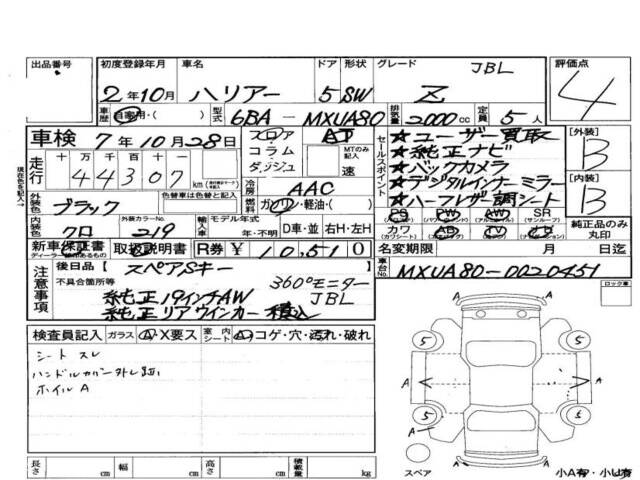 出品番号
初度登録年月 車名 ドア 形状 グレード 評価点
2年10月 ハリアー 5 SW Z JBL 4
車歴 自家用・( ) 型式 6BA-MXUA80 排気量 2000cc 定員 5人
車検 7年10月28日
フロア コラム ダッシュ
AT
MTのみ記入 速
セールスポイント
★ユーザー買取
★純正ナビ
★バックカメラ
★デジタルインナーミラー
★ハーフレザー調シート
[外装] B
[内装] B
走行 十 万 千 百 十 一
44307 km
現在色を記入→
冷房 AAC
外装色 ブラック 色替車は色替と記入
燃料 ガソリン・軽油・( )
PS PW AW SR
内装色 クロ 外装カラーNo. 219
輸入車 モデル年式 年・不明 D車・並 右H・左H
カワ AB TV ナビ
純正品のみ丸印
新車保証書 取扱説明書 R券 ¥10,510
ディーラー
名変期限 月 日迄
注意事項
後日品【 スペアSキー 】
不具合箇所等 360°モニター
純正19インチAW JBL
純正リアウインカー積込
車台No. MXUA80-0020451
ロック車
検査員記入 ガラス A・X要ス 室内シート A コゲ・穴・汚れ・破れ
シート スレ
ハンドルカバー外し跡
ホイル A
5 5
A A
5 5
A A
A
スペア 小A有・小U有
長さ cm 幅 cm 高さ cm 積載量 kg